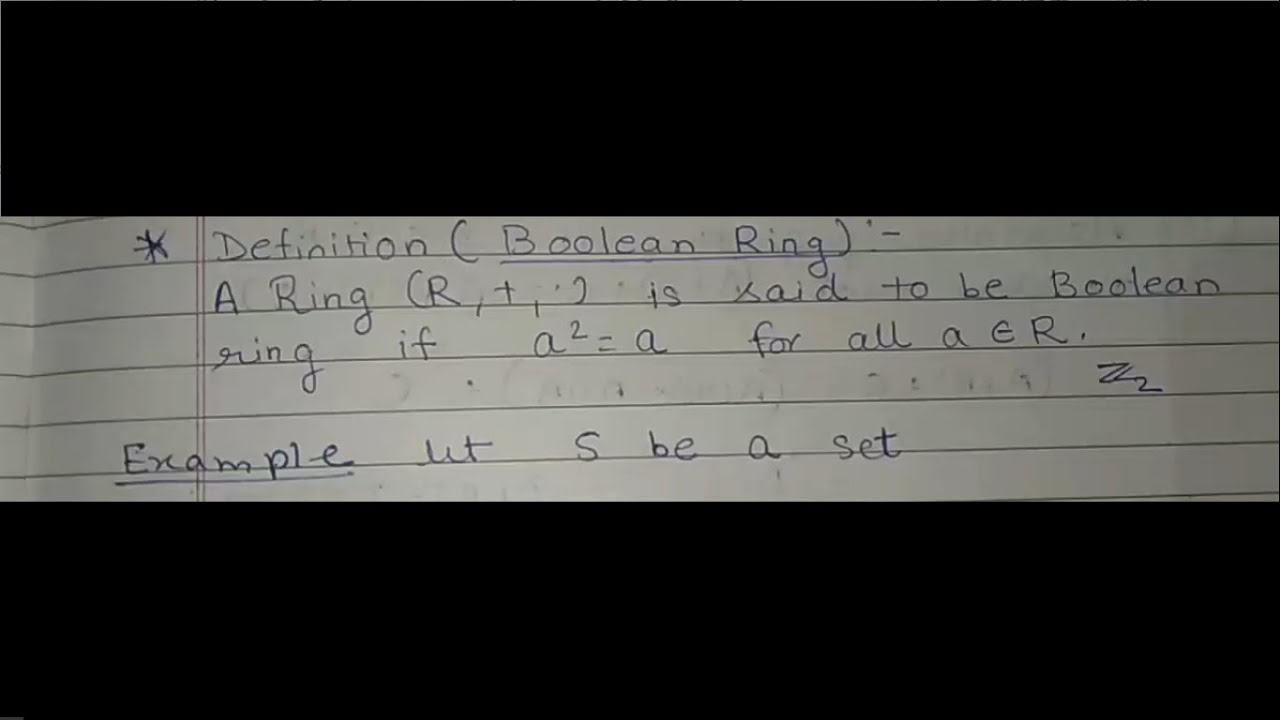 * Definition (Boolean Ring) :-
A Ring (R, +, ·) is said to be Boolean
ring if a² = a for all a ∈ R.
Z₂
Example let S be a set